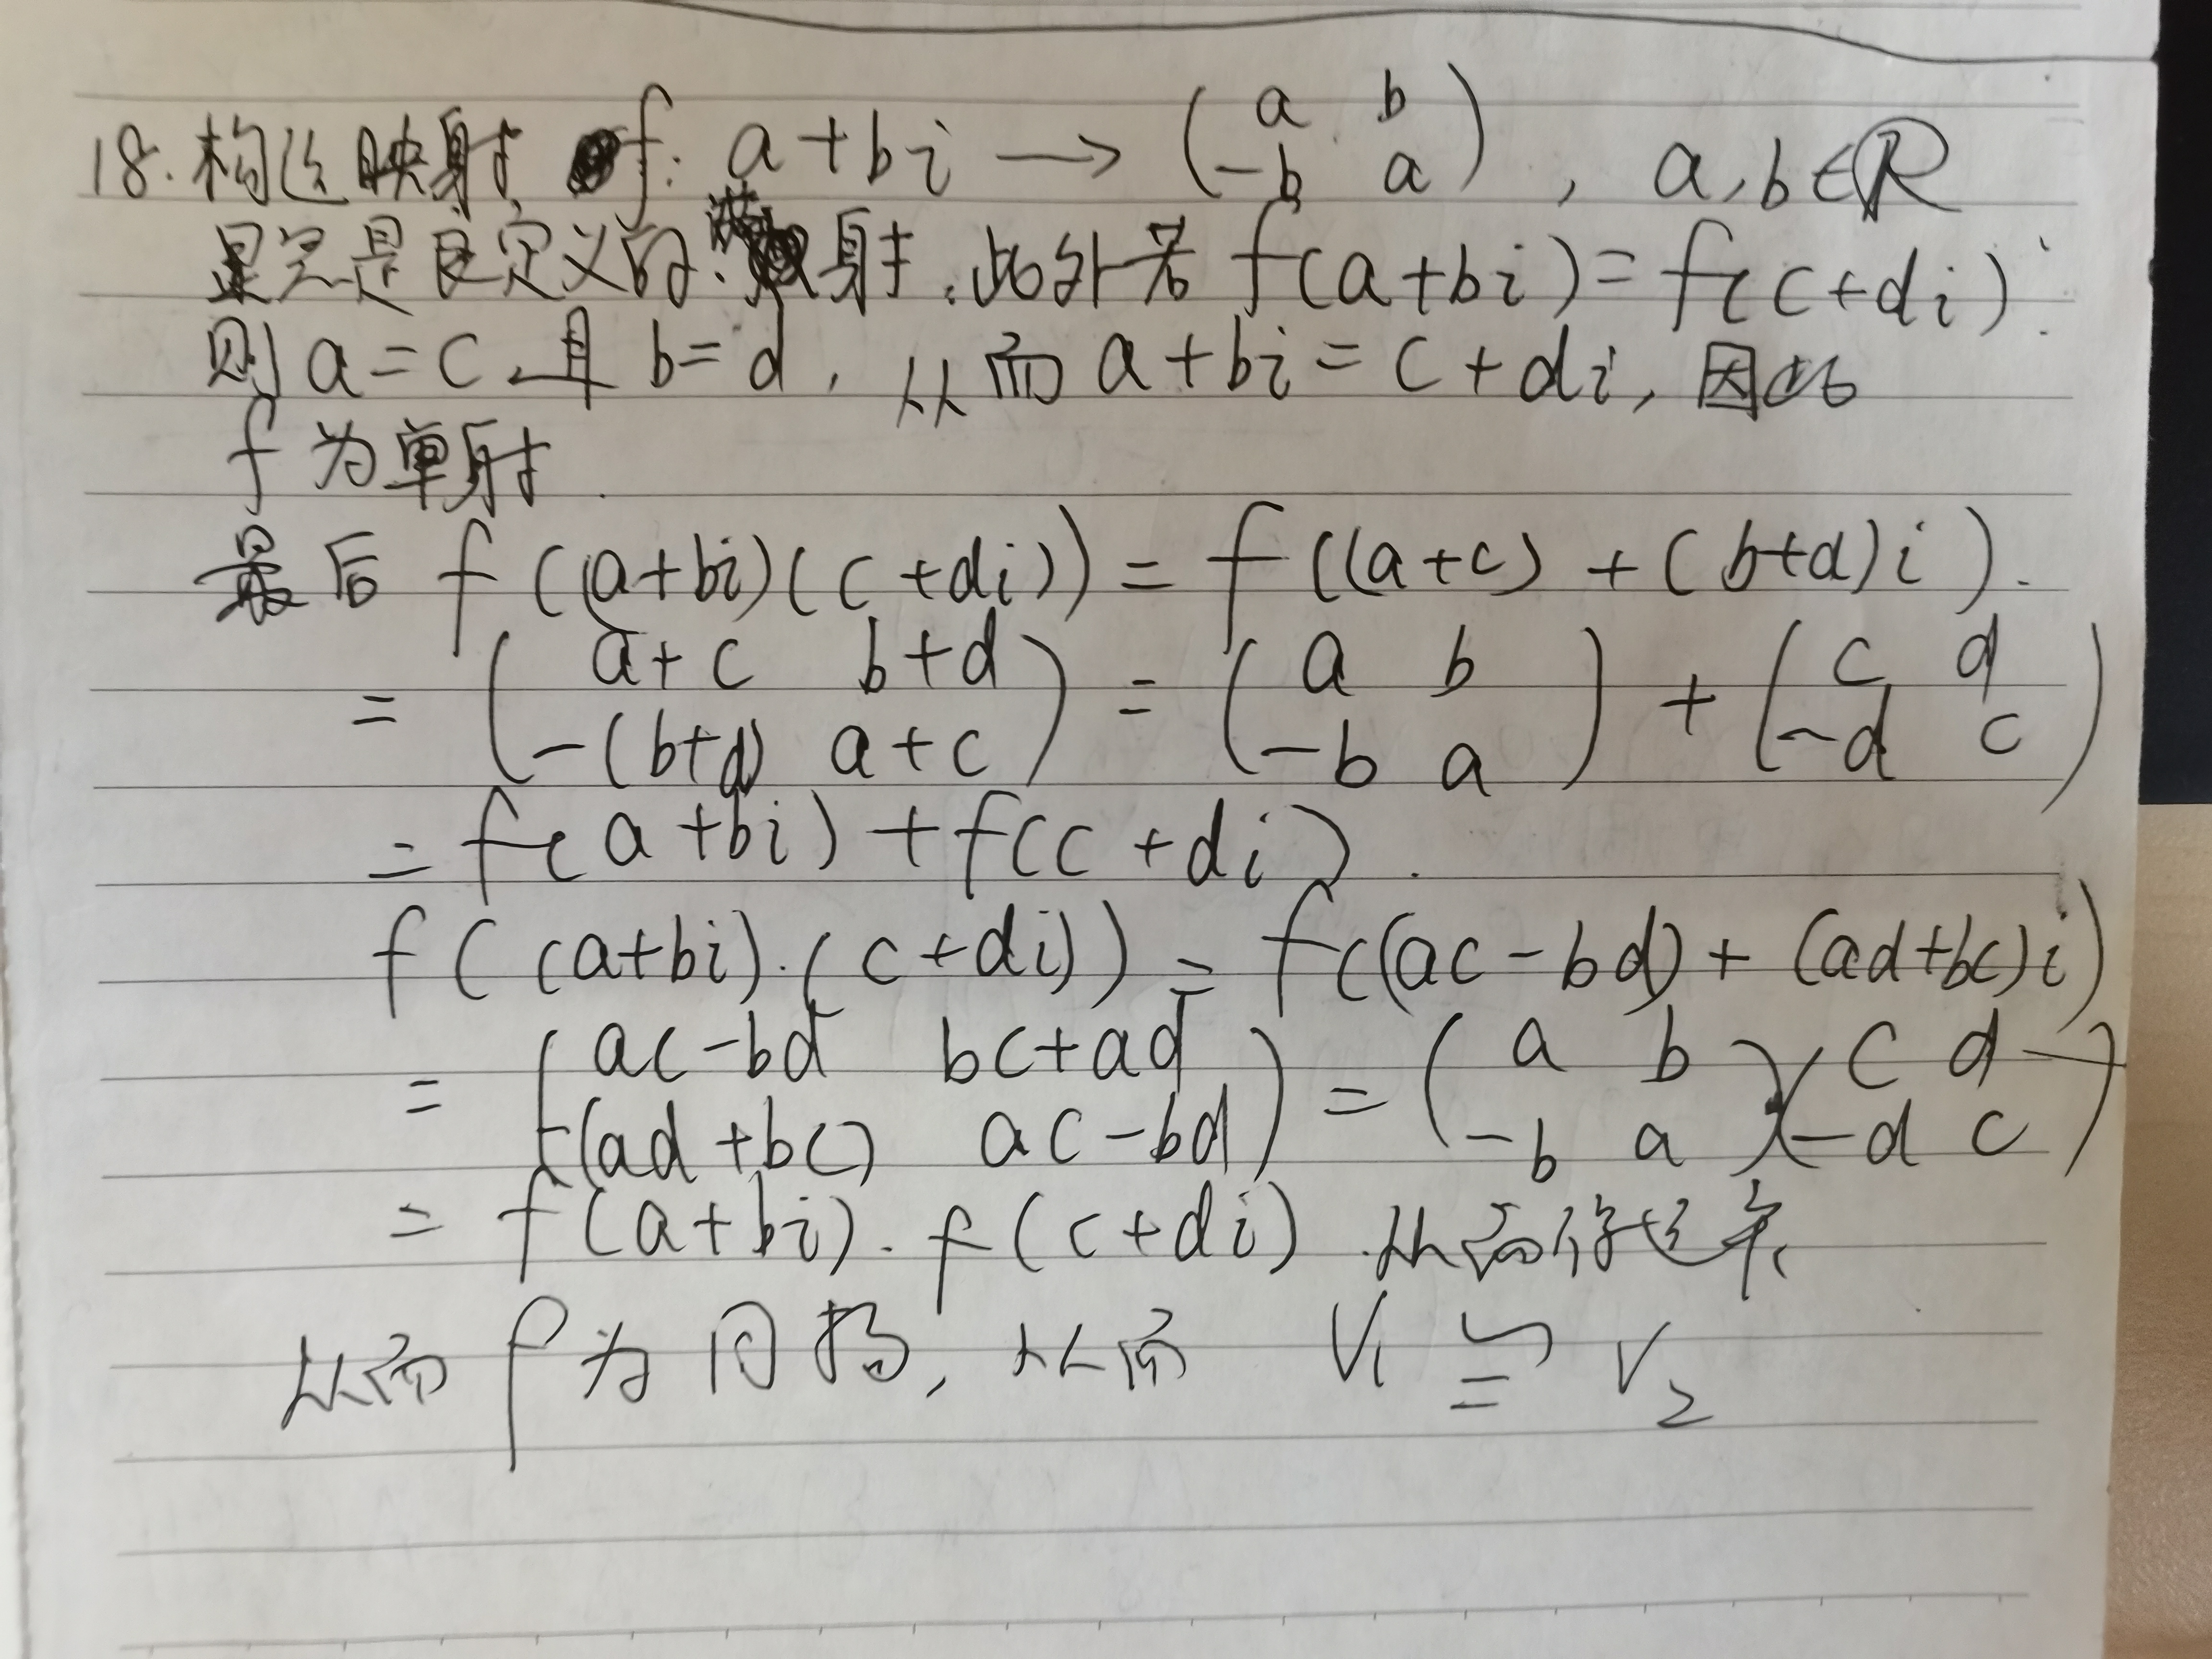 18. 构造映射 f: a+bi → (a b; -b a), a,b∈R
显然是良定义的. 满射. 此外若 f(a+bi)=f(c+di).
则 a=c 且 b=d, 从而 a+bi=c+di, 因此
f 为单射.
最后 f((a+bi)(c+di)) = f((a+c)+(b+d)i).
= (a+c b+d; -(b+d) a+c) = (a b; -b a) + (c d; -d c)
= f(a+bi)+f(c+di).
f((a+bi)·(c+di)) = f((ac-bd)+(ad+bc)i)
= (ac-bd bc+ad; -(ad+bc) ac-bd) = (a b; -b a)(c d; -d c)
= f(a+bi)·f(c+di). 从而
从而 f 为同构, 从而 V₁ ≅ V₂